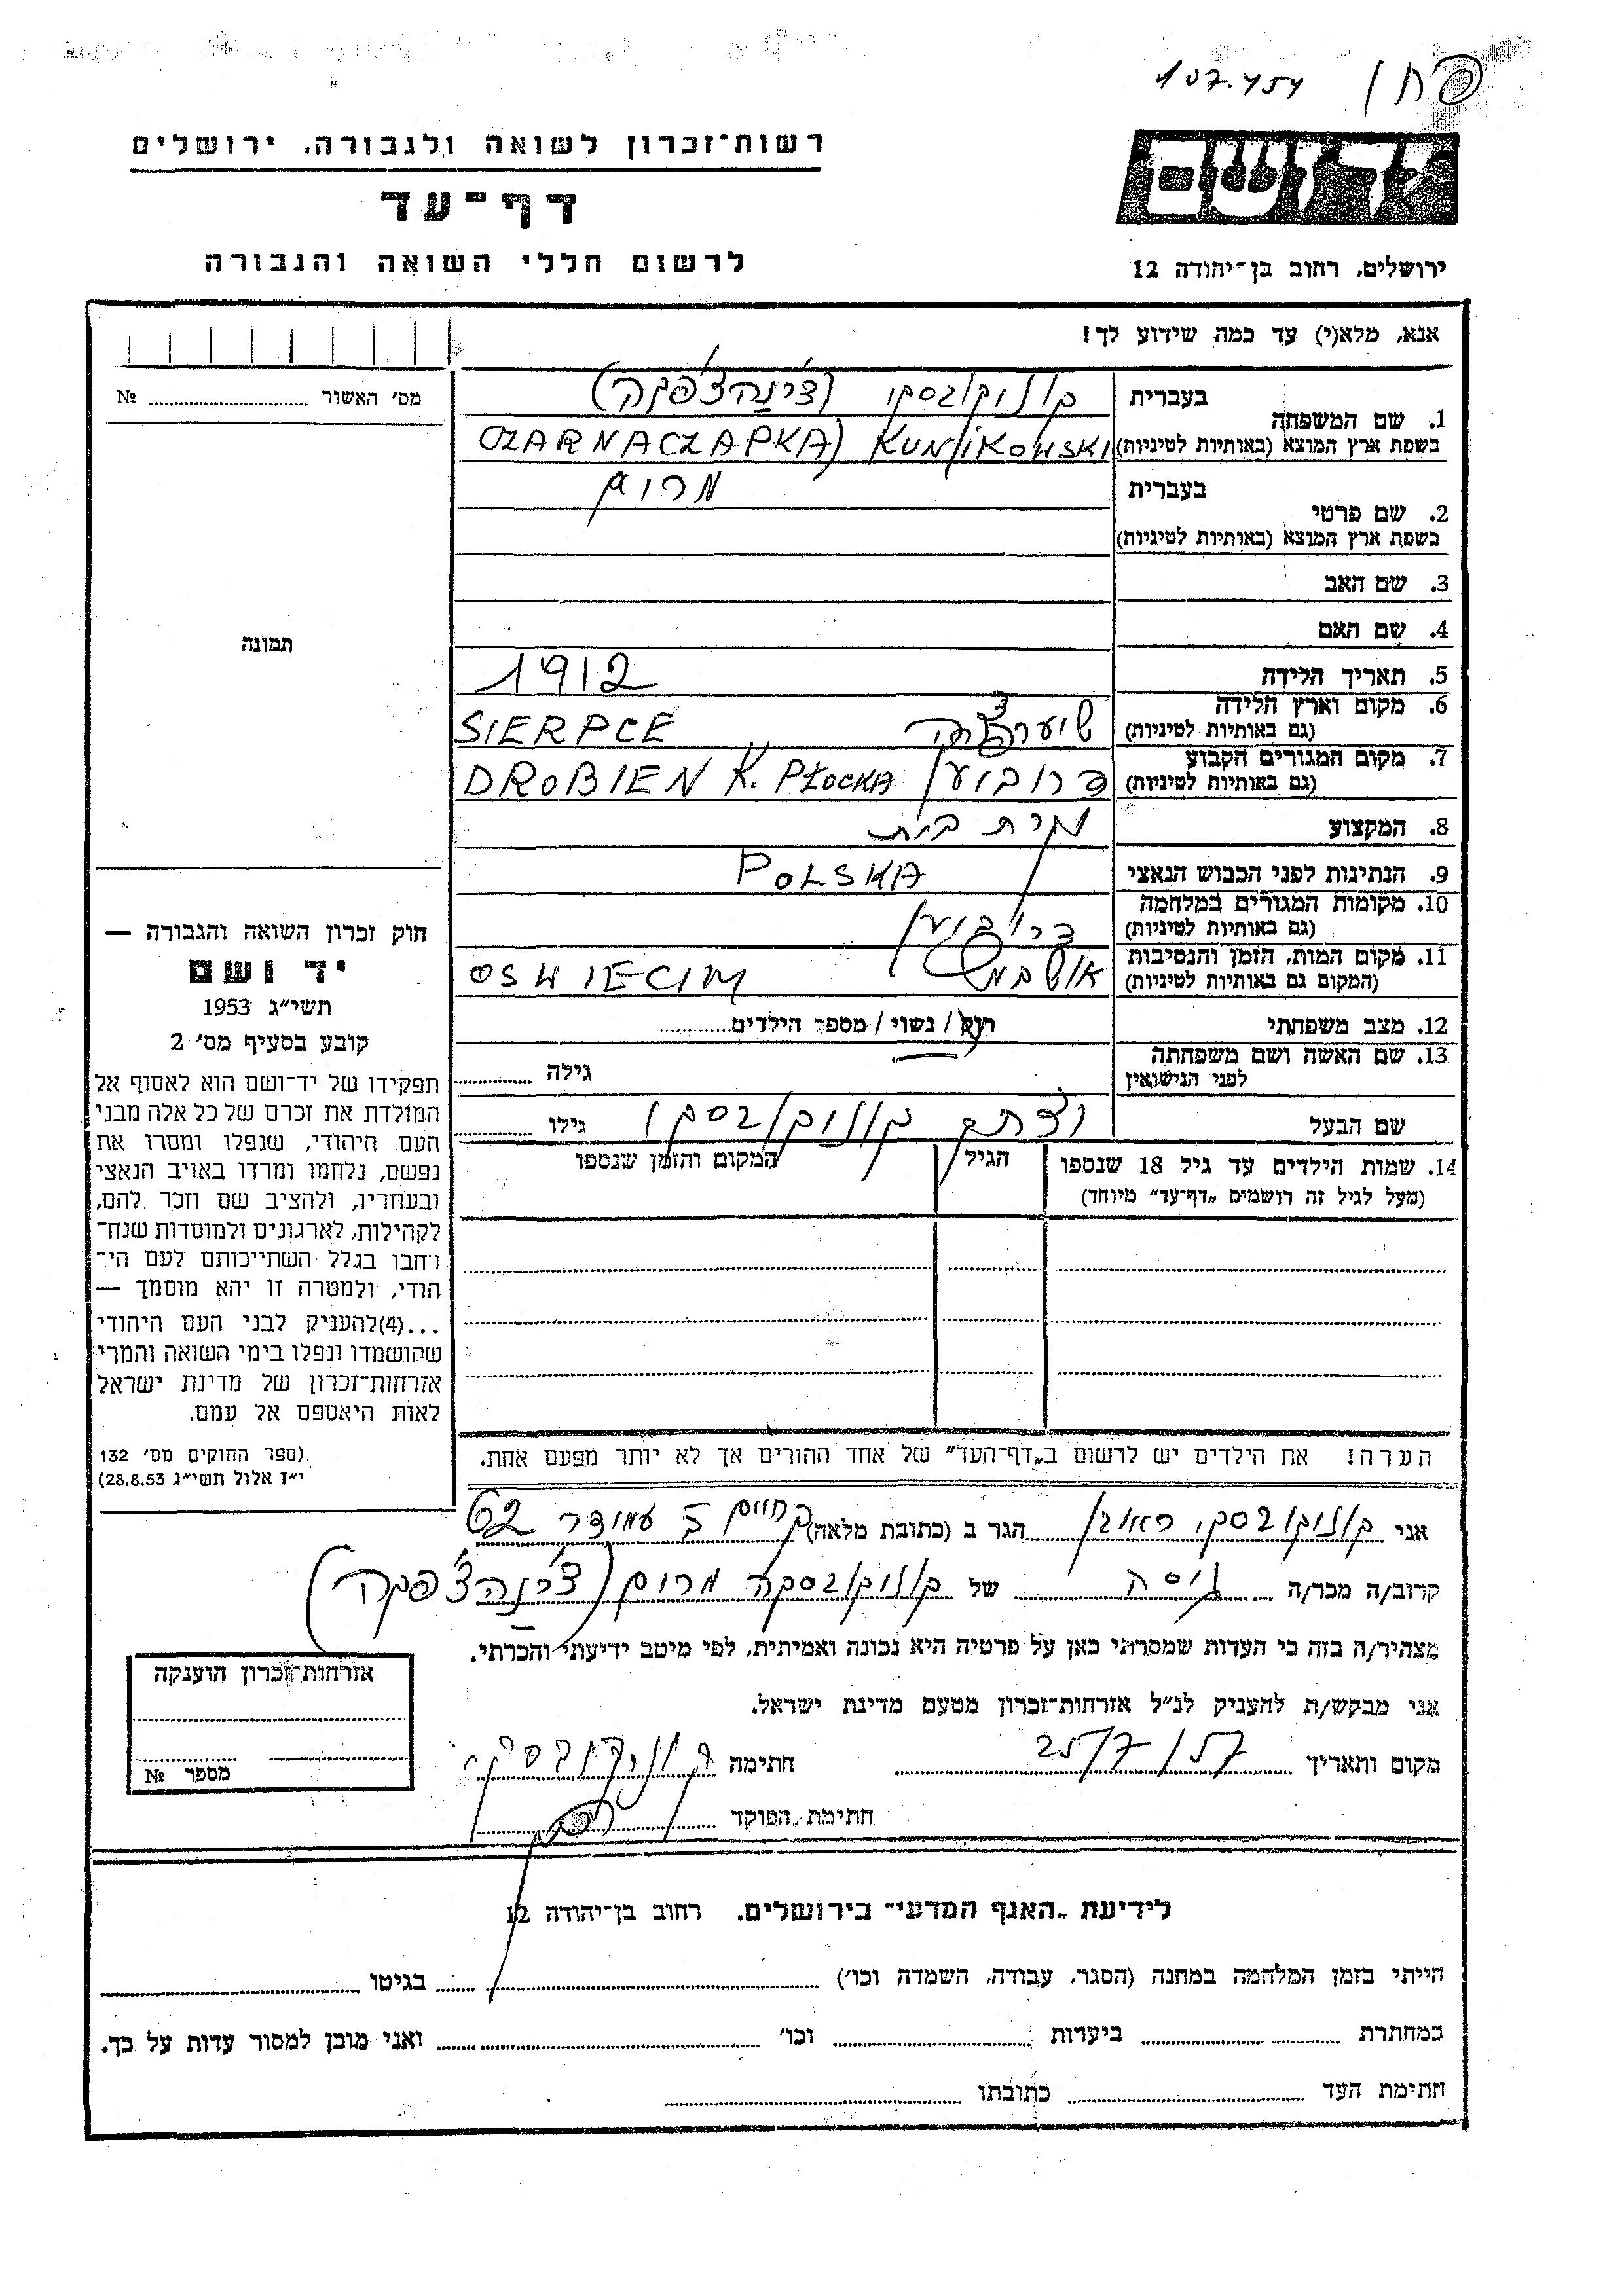 107.454
רשות־זכרון לשואה ולגבורה, ירושלים
דף־עד
לרשום חללי השואה והגבורה
יד ושם
ירושלים, רחוב בן־יהודה 12
אנא, מלא(י) עד כמה שידוע לך!
מס׳ האשור № 
1. שם המשפחה
בעברית קוניקובסקי
בשפת ארץ המוצא (באותיות לטיניות) CZARNACZAPKA) KUNIKOWSKI
2. שם פרטי
בעברית מרים
בשפת ארץ המוצא (באותיות לטיניות)
3. שם האב
4. שם האם
5. תאריך הלידה 1912
6. מקום וארץ הלידה
(גם באותיות לטיניות) SIERPCE
7. מקום המגורים הקבוע
(גם באותיות לטיניות) DROBIEN K. PŁOCKA
8. המקצוע בית
9. הנתינות לפני הכבוש הנאצי POLSKA
10. מקומות המגורים במלחמה
(גם באותיות לטיניות)
11. מקום המות, הזמן והנסיבות
(המקום גם באותיות לטיניות) OSWIECIM
12. מצב משפחתי רווק / נשוי / מספר הילדים
13. שם האשה ושם משפחתה
לפני הנישואין גילה
שם הבעל קוניקובסקי גילו
14. שמות הילדים עד גיל 18 שנספו הגיל המקום והזמן שנספו
(מעל לגיל זה רושמים „דף־עד״ מיוחד)
הערה! את הילדים יש לרשום ב„דף־העד״ של אחד ההורים אך לא יותר מפעם אחת.
תמונה
חוק זכרון השואה והגבורה —
יד ושם
תשי״ג 1953
קובע בסעיף מס׳ 2
תפקידו של יד־ושם הוא לאסוף אל
המולדת את זכרם של כל אלה מבני
העם היהודי, שנפלו ומסרו את
נפשם, נלחמו ומרדו באויב הנאצי
ובעוזריו, ולהציב שם וזכר להם,
לקהילות, לארגונים ולמוסדות שנח־
רחבו בגלל השתייכותם לעם הי־
הודי, ולמטרה זו יהא מוסמך —
...(4)להעניק לבני העם היהודי
שהושמדו ונפלו בימי השואה והמרי
אזרחות־זכרון של מדינת ישראל
לאות היאספם אל עמם.
(ספר החוקים מס׳ 132
י״ז אלול תשי״ג 28.8.53)
אני קוניקובסקי ראובן הגר ב (כתובת מלאה) 62
קרוב/ה מכר/ה גיסה של קוניקובסקה מרים
מצהיר/ה בזה כי העדות שמסרתי כאן על פרטיה היא נכונה ואמיתית, לפי מיטב ידיעתי והכרתי.
אני מבקש/ת להעניק לנ״ל אזרחות־זכרון מטעם מדינת ישראל.
מקום ותאריך 25/7/57 חתימה קוניקובסקי
חתימת הפוקד
אזרחות־זכרון הוענקה
מספר №
לידיעת „האגף המדעי״ בירושלים, רחוב בן־יהודה 12
הייתי בזמן המלחמה במחנה (הסגר, עבודה, השמדה וכו׳) בגיטו
במחתרת ביערות וכו׳ ואני מוכן למסור עדות על כך.
חתימת העד כתובתו